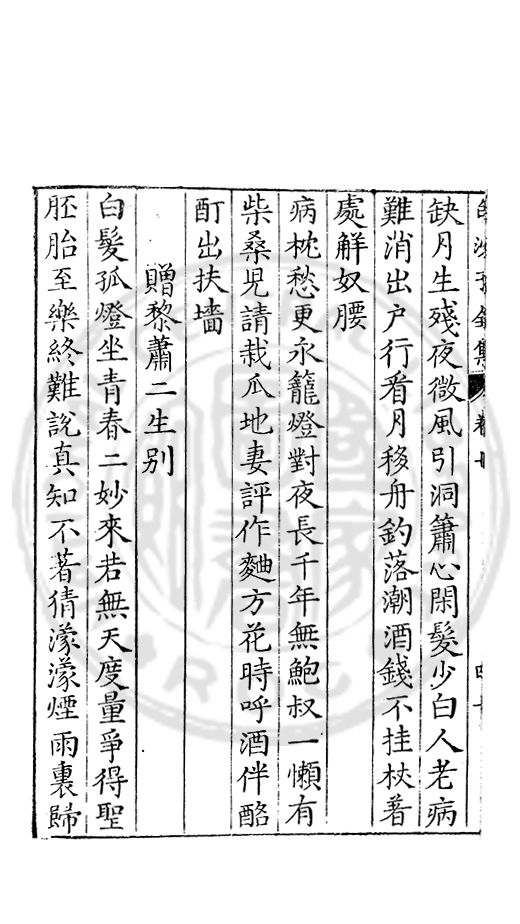 白沙子全集 卷
缺月生殘夜微風引洞簫心閑髮少白人老病
難消出户行看月移舟釣落潮酒錢不挂杖著
處觧奴腰
病枕愁更永籠燈對夜長千年無鮑叔一懶有
柴桑児請栽瓜地妻評作麯方花時呼酒伴酩
酊出扶墻
贈黎蕭二生别
白髮孤燈坐青春二妙來若無天度量爭得聖
胚胎至樂終難說真知不著猜濛濛煙雨裏歸